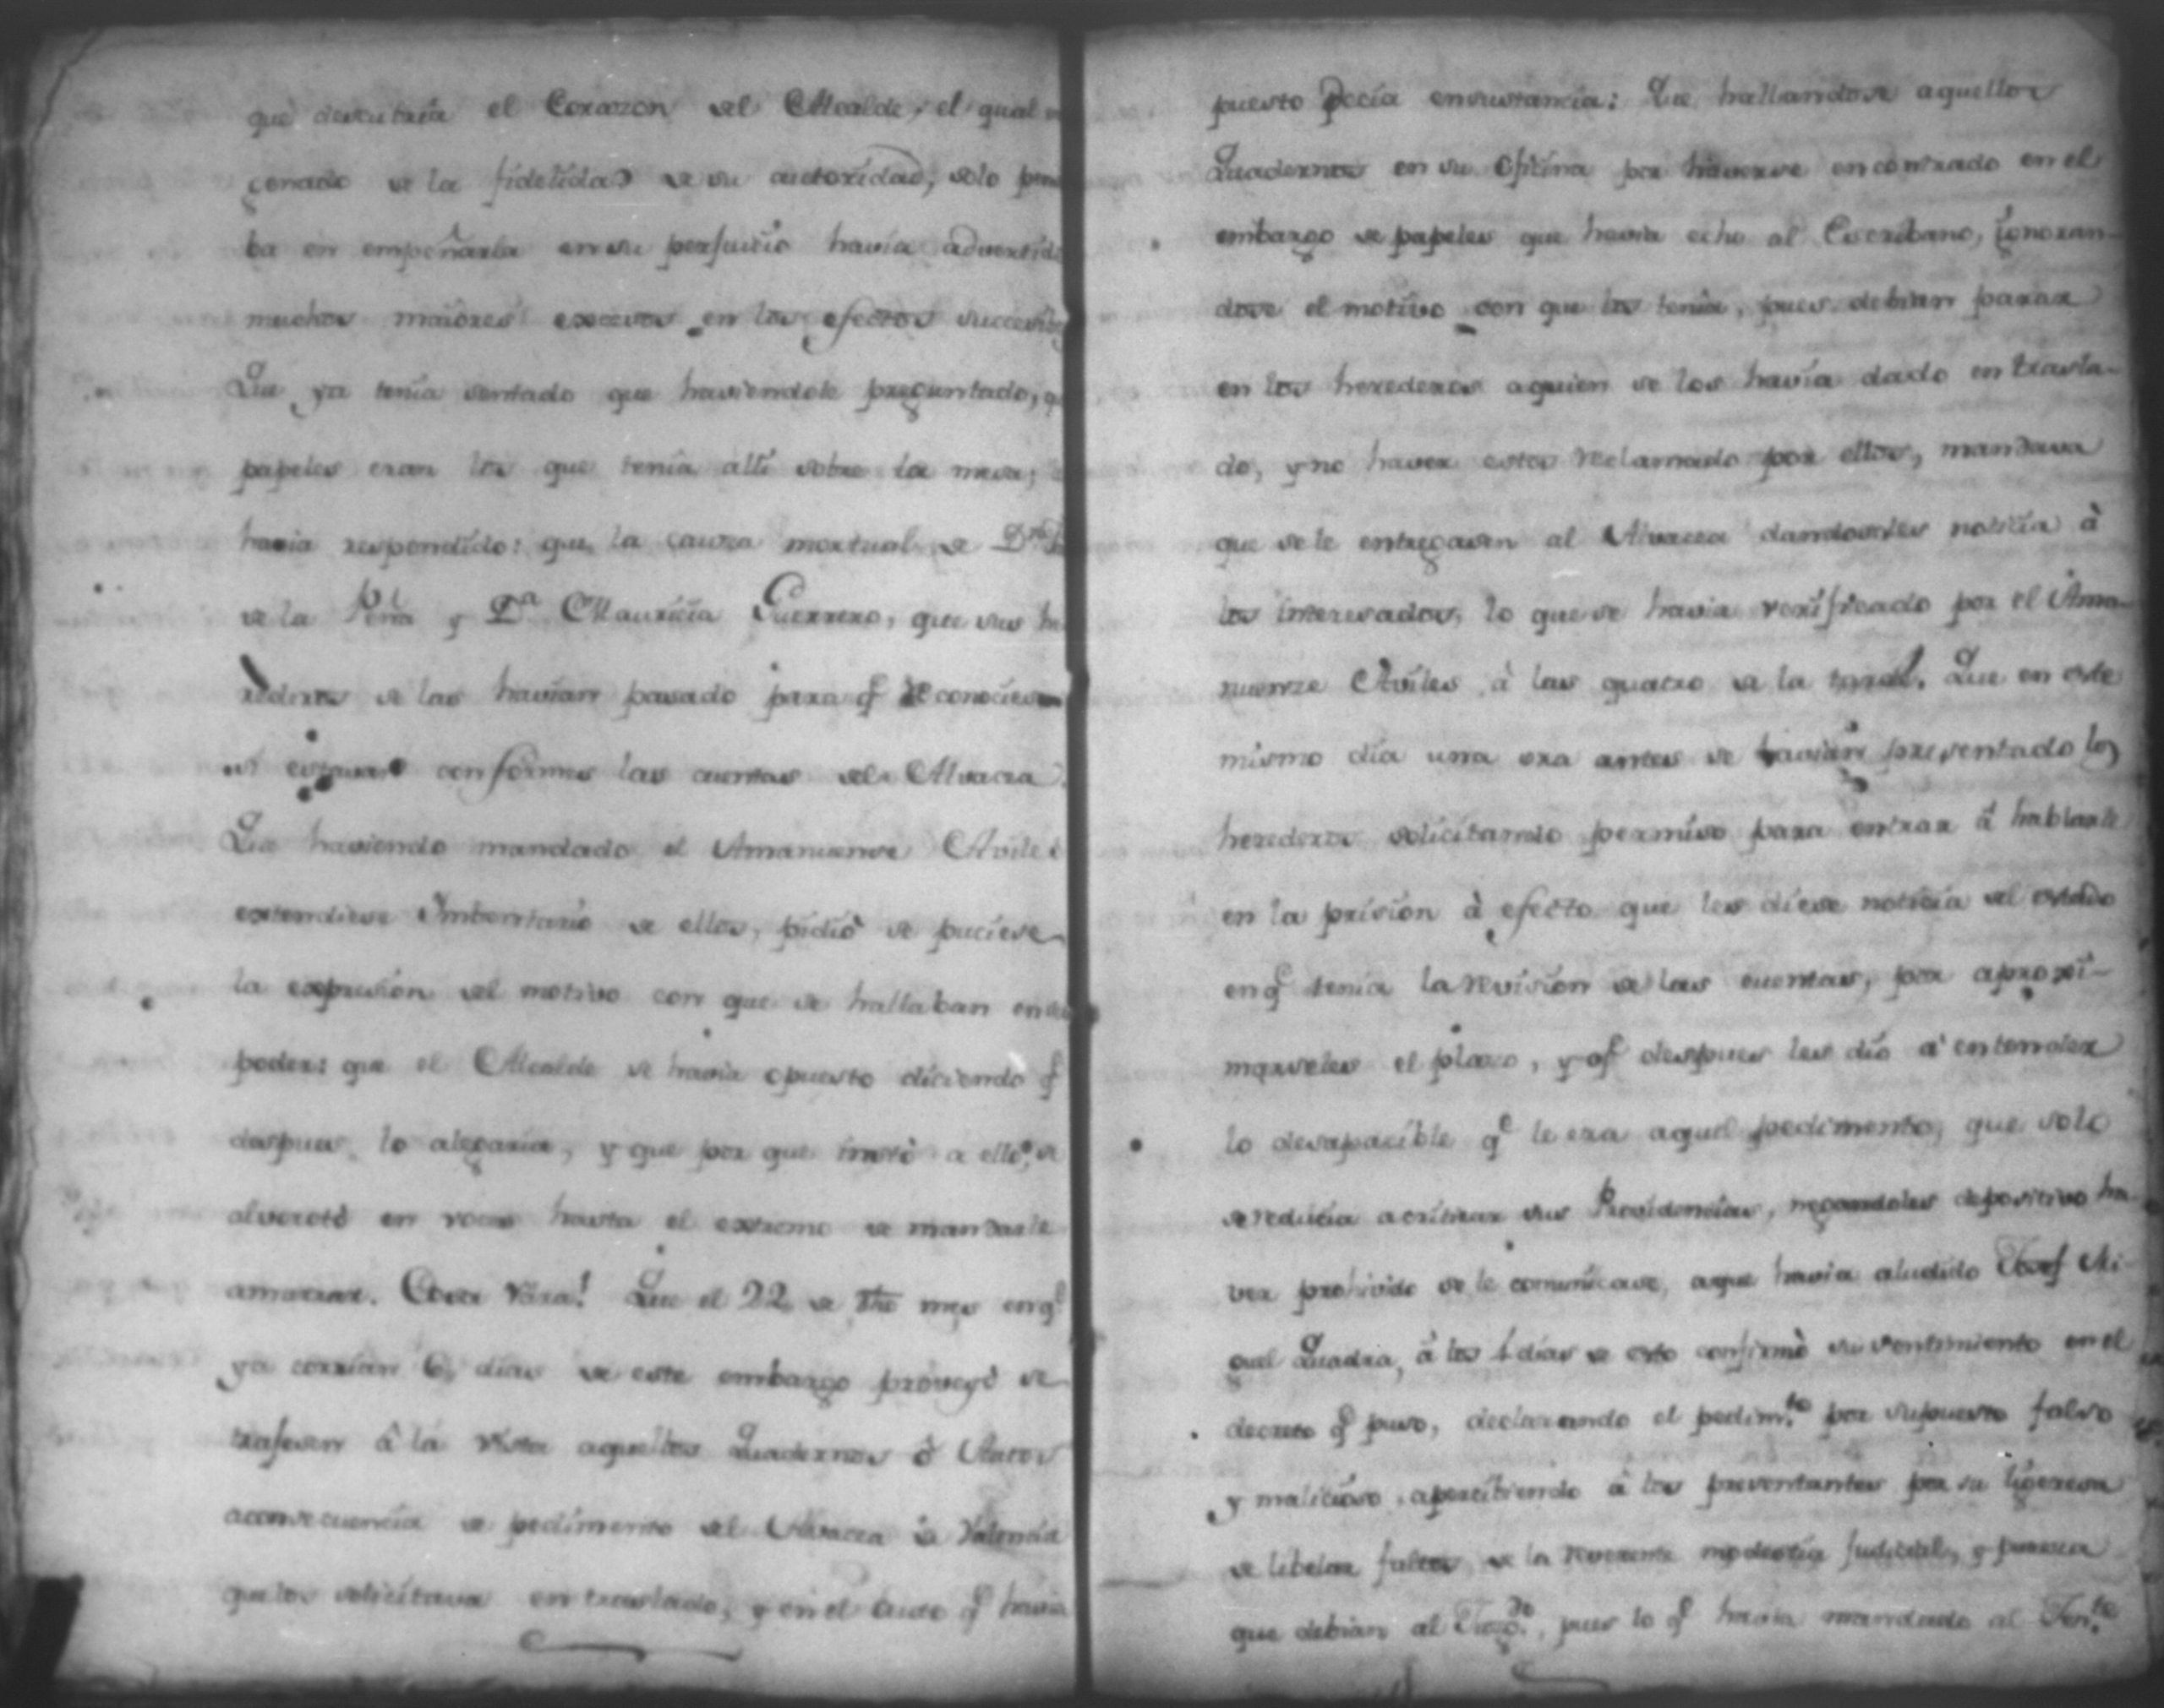 que descubria el Corazon del Alcalde, el qual
de la fidelidad de su autoridad, solo pen
ba en empeñarla en su perjuicio havia advertido
muchos maiores excesos en los efectos successivos
Que ya tenia sentado que haviendole preguntado, q
papeles eran los que tenia alli sobre la mesa;
havia respondido: que la causa mortual de Dn
de la Peña y Da Mauricia Guerrero, que sus he
rederos se las havian pasado para q reconociese
si estavan conformes las cuentas del Alvacea.
Que haviendo mandado el Amanuense Aviles
extendiese Imbentario de ellos, pidió se puciese
la expresion del motivo con que se hallaban en su
poder: que el Alcalde se havia opuesto diciendo q
despues lo alegaria, y que por que instó a ello, se
alvorotó en voces hasta el extremo de mandarle
amarrar. Cosa rara! Que el 22 de dho mes en qe
ya corrian 6 dias de este embargo proveyó se
trajesen â la vista aquellos Quadernos ô Autos
aconsecuencia de pedimento del Alvacea Valencia
que los solicitava en traslado, y en el auto qe havia
puesto decia ensustancia: Que hallandose aquellos
Quadernos en su Oficina por haverse encontrado en el
embargo de papeles que havia echo al Escribano, ignoran-
dose el motivo con que los tenia, pues debian parar
en los herederos aquien se los havia dado en trasla-
do, y no haver estos reclamado por ellos, mandava
que se le entregasen al Alvacea dandoseles noticia à
los interesados, lo que se havia verificado por el Ama-
nuense Aviles à las quatro de la tarde. Que en este
mismo dia una ora antes se havian presentado los
herederos solicitando permiso para entrar â hablarle
en la prision à efecto que les diese noticia del estado
en qe tenia la revision de las cuentas, por aproxi-
marseles el plazo, y qe despues les dio a entender
lo desapacible qe le era aquel pedimento, que solo
se reducia a criticar sus Providencias, negandoles depositivo ha-
ver prohivido se le comunicase, aque havia aludido Josef Mi-
guel Quadra, â los 4 dias de esto confirmò su sentimiento en el
decreto qe puso, declarando el pedimto por supuesto falso
y malicioso, apercibiendo â los presentantes por su ligereza
de libelar faltos de la reverente modestia judicial, y pureza
que debian al Juzgdo, pues lo qe havia mandado al Tente